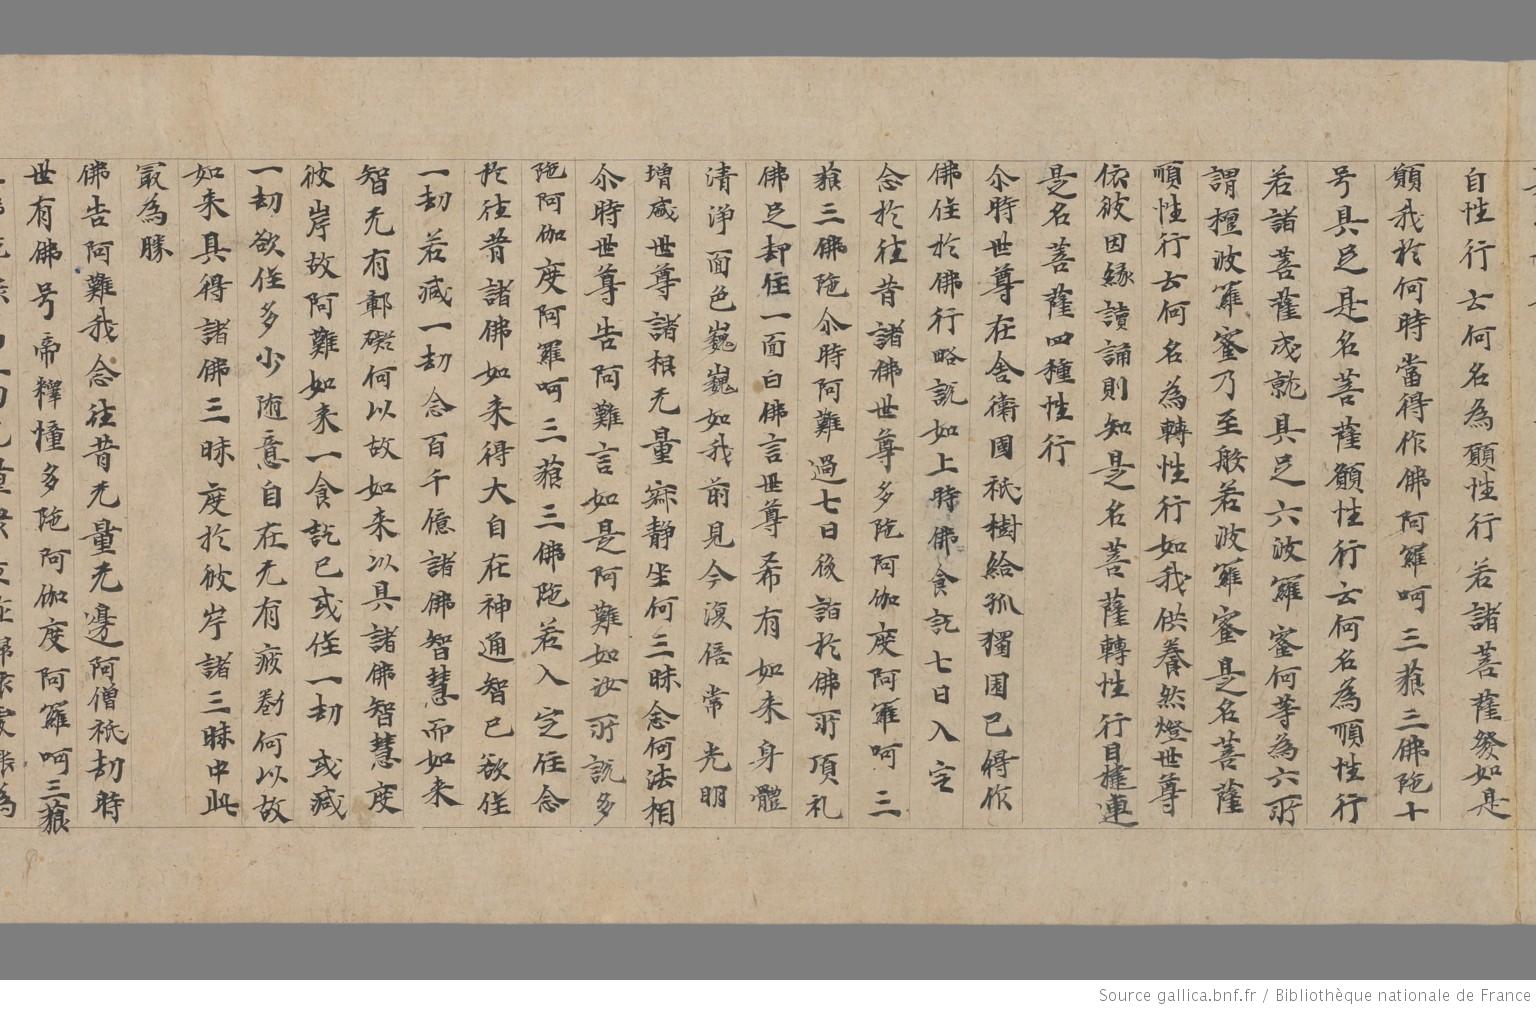 自性行云何名為願性行若諸菩薩發如是
願我於何時當得作佛阿羅呵三藐三佛陁十
号具足是名菩薩願性行云何名為順性行
若諸菩薩成就具足六波羅蜜何等為六所
謂檀波羅蜜乃至般若波羅蜜是名菩薩
順性行云何名為轉性行如我供養然燈世尊
依彼因緣讀誦則知是名菩薩轉性行目揵連
是名菩薩四種性行
尒時世尊在舍衛國祇樹給孤獨園已得作
佛住於佛行略說如上時佛食訖七日入定
念於往昔諸佛世尊多陁阿伽度阿羅呵三
藐三佛陁尒時阿難過七日後詣於佛所頂礼
佛足却住一面白佛言世尊希有如来身體
清淨面色巍巍如我前見今復倍常光明
增威世尊諸根无量寂静坐何三昧念何法相
尒時世尊告阿難言如是阿難如汝所說多
陁阿伽度阿羅呵三藐三佛陁若入定住念
於往昔諸佛如来得大自在神通智已欲住
一劫若减一劫念百千億諸佛智慧而如来
智无有鄣礙何以故如来以具諸佛智慧度
彼岸故阿難如来一食訖已或住一劫或减
一劫欲住多少随意自在无有疲惓何以故
如来具得諸佛三昧度於彼岸諸三昧中此
冣為勝
佛告阿難我念往昔无量无邊阿僧祇劫時
世有佛号帝釋憧多陁阿伽度阿羅呵三藐